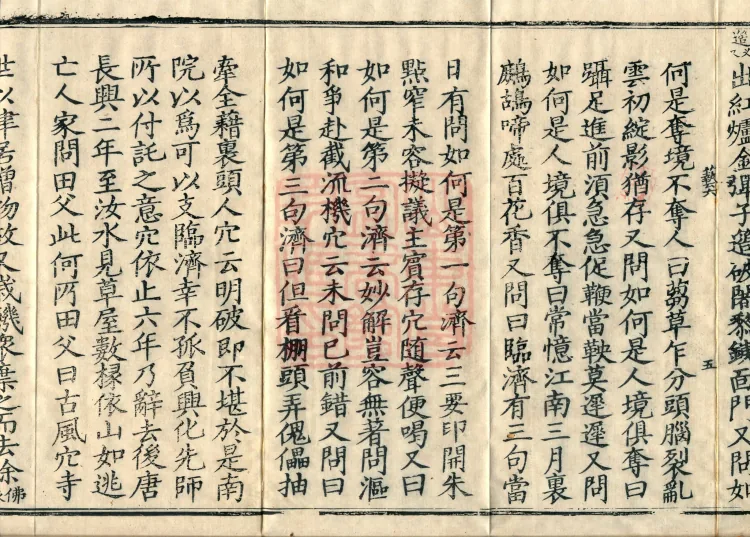 出紅爐金彈子簉破闍黎鐵面門又問如
何是奪境不奪人曰蒭草乍分頭腦裂亂
雲初綻影猶存又問如何是人境俱奪曰
躡足進前須急急促鞭當鞅莫遲遲又問
如何是人境俱不奪曰常憶江南三月裏
鷓鴣啼處百花香又問曰臨濟有三句當
藝
五
日有問如何是第一句濟云三要印開朱
點窄未容擬議主賓存穴随聲便喝又曰
如何是第二句濟云妙解豈容無著問漚
和爭赴截流機穴云未問已前錯又問曰
如何是第三句濟曰但看棚頭弄傀儡抽
牽全藉裏頭人穴云明破即不堪於是南
院以為可以支臨濟幸不孤負興化先師
所以付託之意穴依止六年乃辭去後唐
長興二年至汝水見草屋數椽依山如逃
亡人家問田父此何所田父曰古風穴寺
世以律居僧物故又歲饑眾棄之而去余